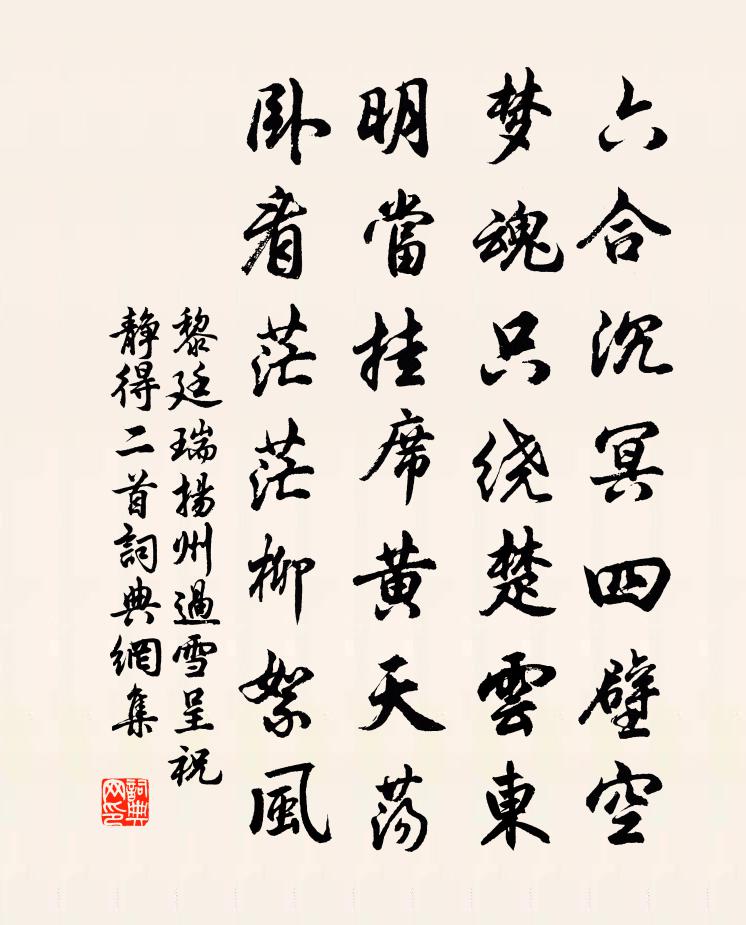 六合沉冥四壁空
梦魂只绕楚雲東
明當挂席黄天荡
卧看茫茫柳絮風
黎廷瑞揚州過雪呈祝
静得二首詞典網集
詞典网印